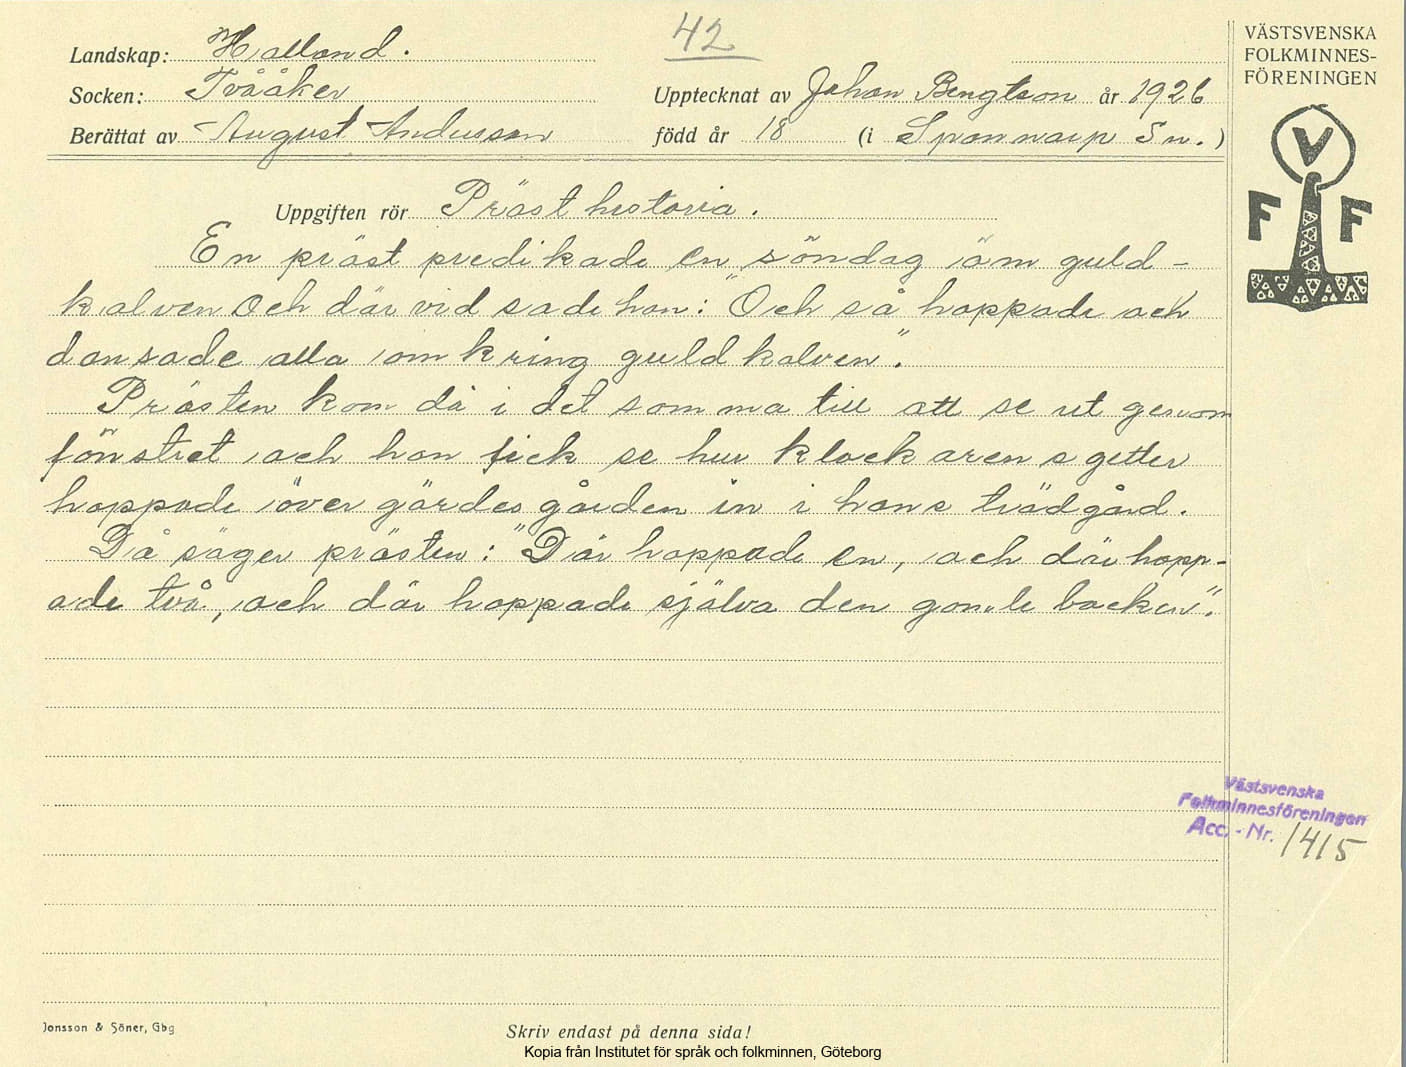 42
VÄSTSVENSKA
FOLKMINNES-
FÖRENINGEN
V
F F
Landskap: Halland.
Socken: Tvååker
Upptecknat av Johan Bengtson år 1926
Berättat av August Andersson
född år 18 (i Spannarp Sn.)
Uppgiften rör Präst historia.
En präst predikade en söndag om guld-
kalven och där vid sade han: "Och så hoppade och
dansade alla omkring guldkalven".
Prästen kom då i det samma till att se ut genom
fönstret och han fick se hur klockarens getter
hoppade över gärdesgården in i hans trädgård.
Då säger prästen: "Där hoppade en, och där hopp-
ade två, och där hoppade själva den gamle bocken".
Västsvenska
Folkminnesföreningen
Acc.-Nr. 1415
Jonsson & Söner, Gbg
Skriv endast på denna sida!
Kopia från Institutet för språk och folkminnen, Göteborg